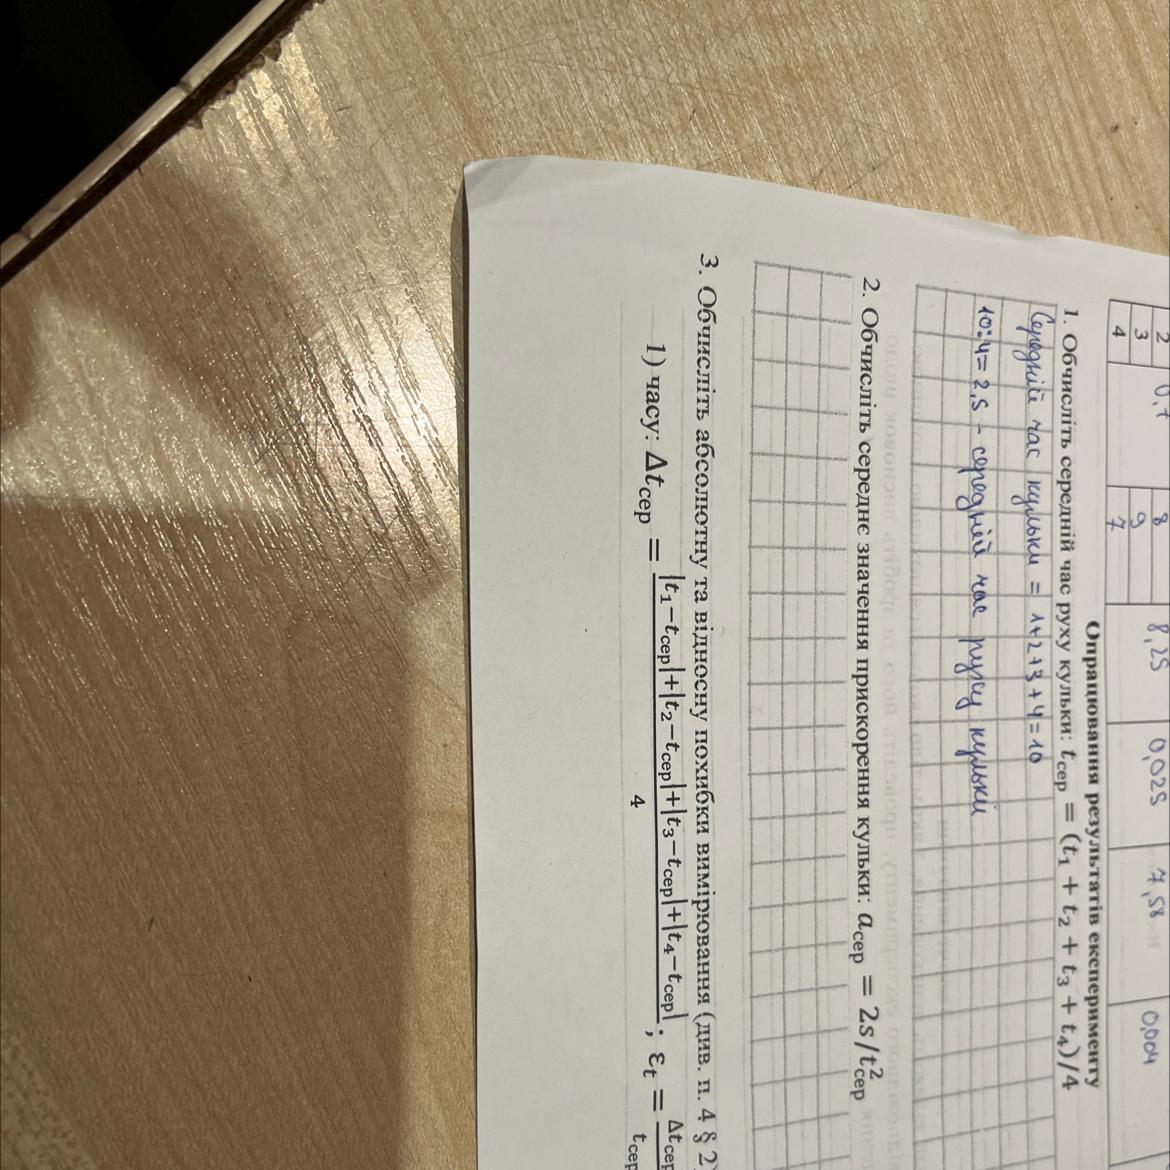 2 0,7 8 8,25 0,025 7,58 0,004
3 9
4 7
Опрацювання результатів експерименту
1. Обчисліть середній час руху кульки: tсер = (t1 + t2 + t3 + t4)/4
Середній час кульки = 1+2+3+4=10
10:4=2,5 - середній час руху кульки
2. Обчисліть середнє значення прискорення кульки: aсер = 2s/t²сер
3. Обчисліть абсолютну та відносну похибки вимірювання (див. п. 4 § 2)
1) часу: Δtсер = |t1−tсер|+|t2−tсер|+|t3−tсер|+|t4−tсер| / 4 ; εt = Δtсер / tсер